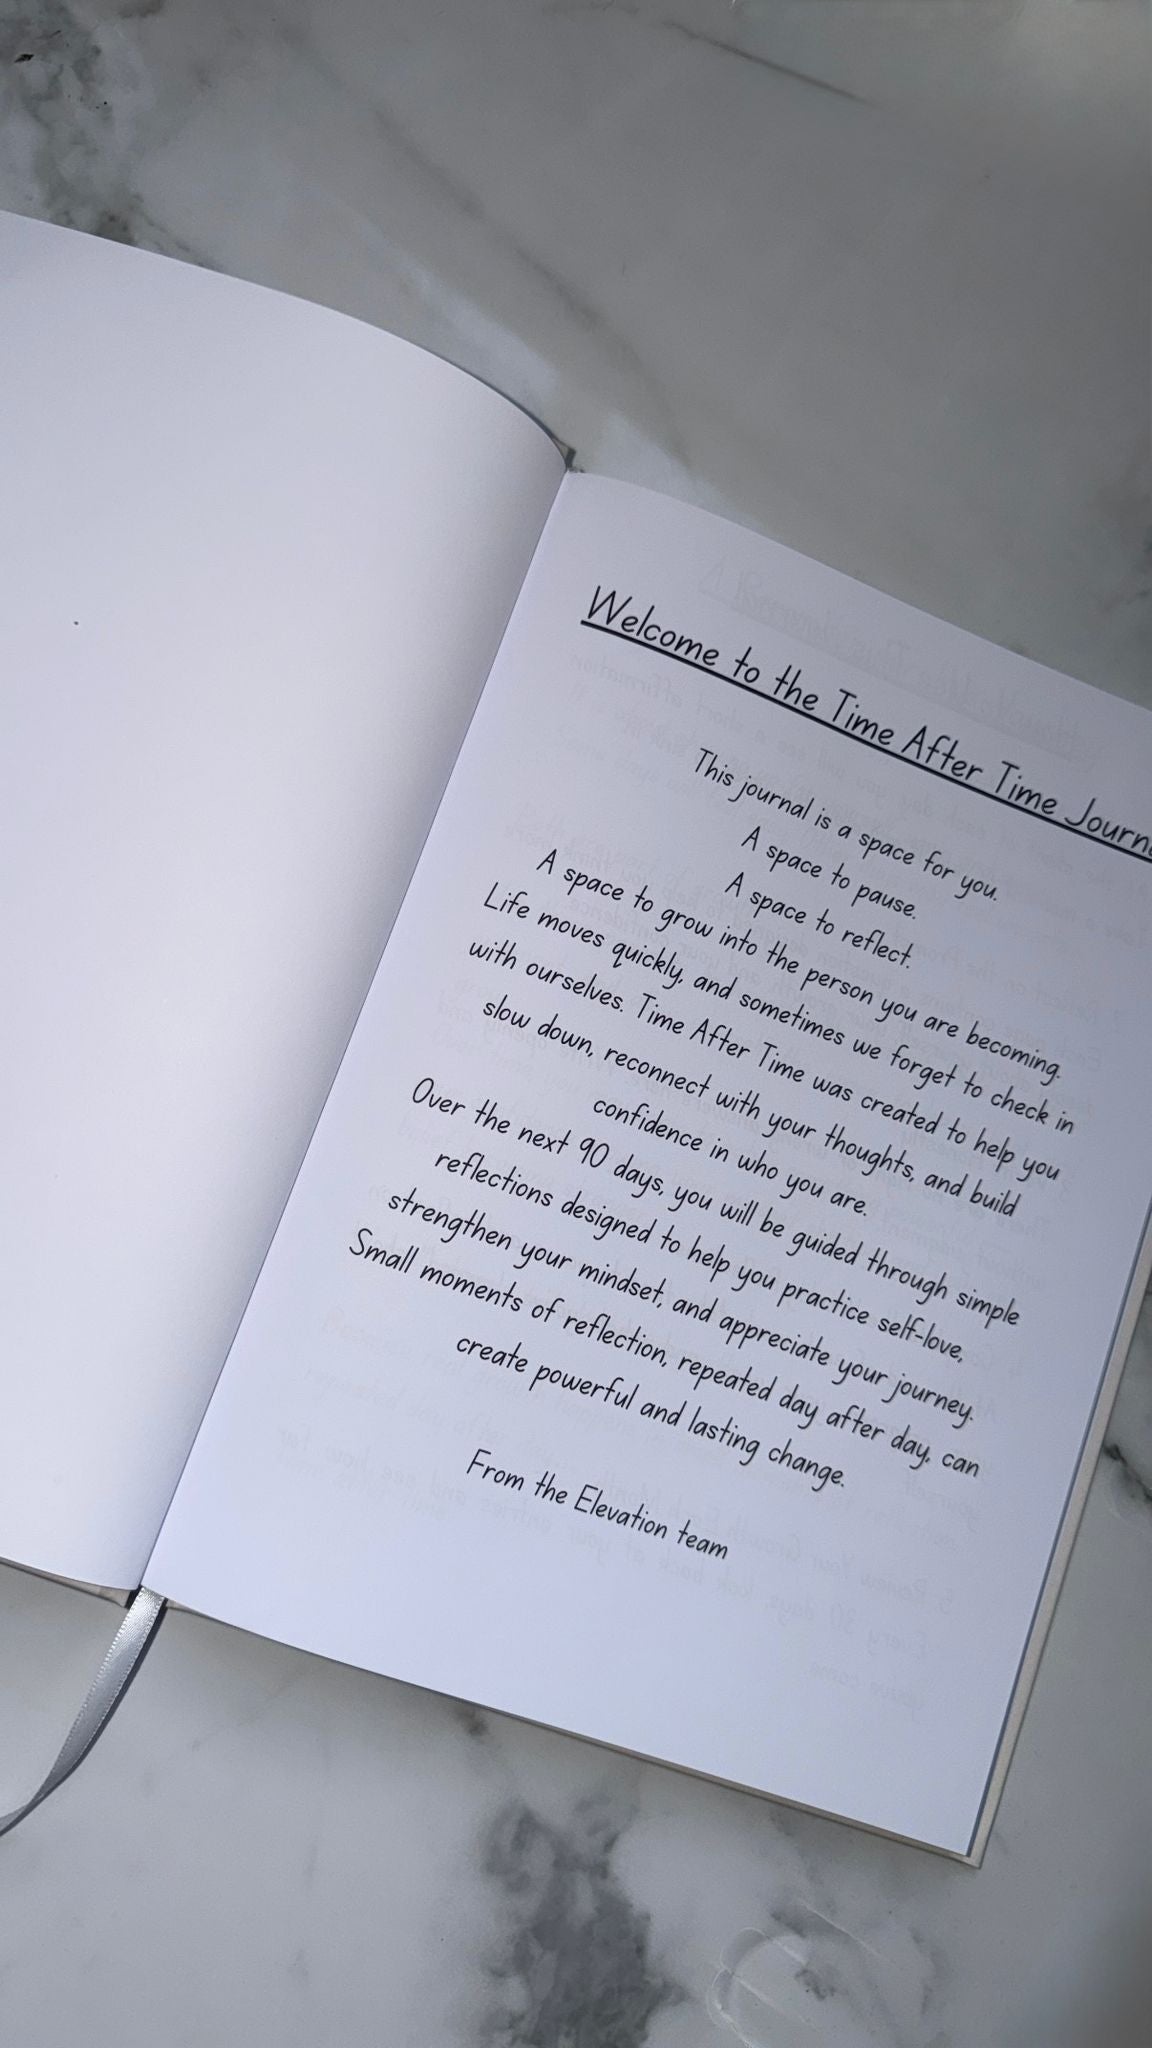 Welcome to the Time After Time Journ
This journal is a space for you.
A space to pause.
A space to reflect.
A space to grow into the person you are becoming.
Life moves quickly, and sometimes we forget to check in
with ourselves. Time After Time was created to help you
slow down, reconnect with your thoughts, and build
confidence in who you are.
Over the next 90 days, you will be guided through simple
reflections designed to help you practice self-love,
strengthen your mindset, and appreciate your journey.
Small moments of reflection, repeated day after day, can
create powerful and lasting change.
From the Elevation team